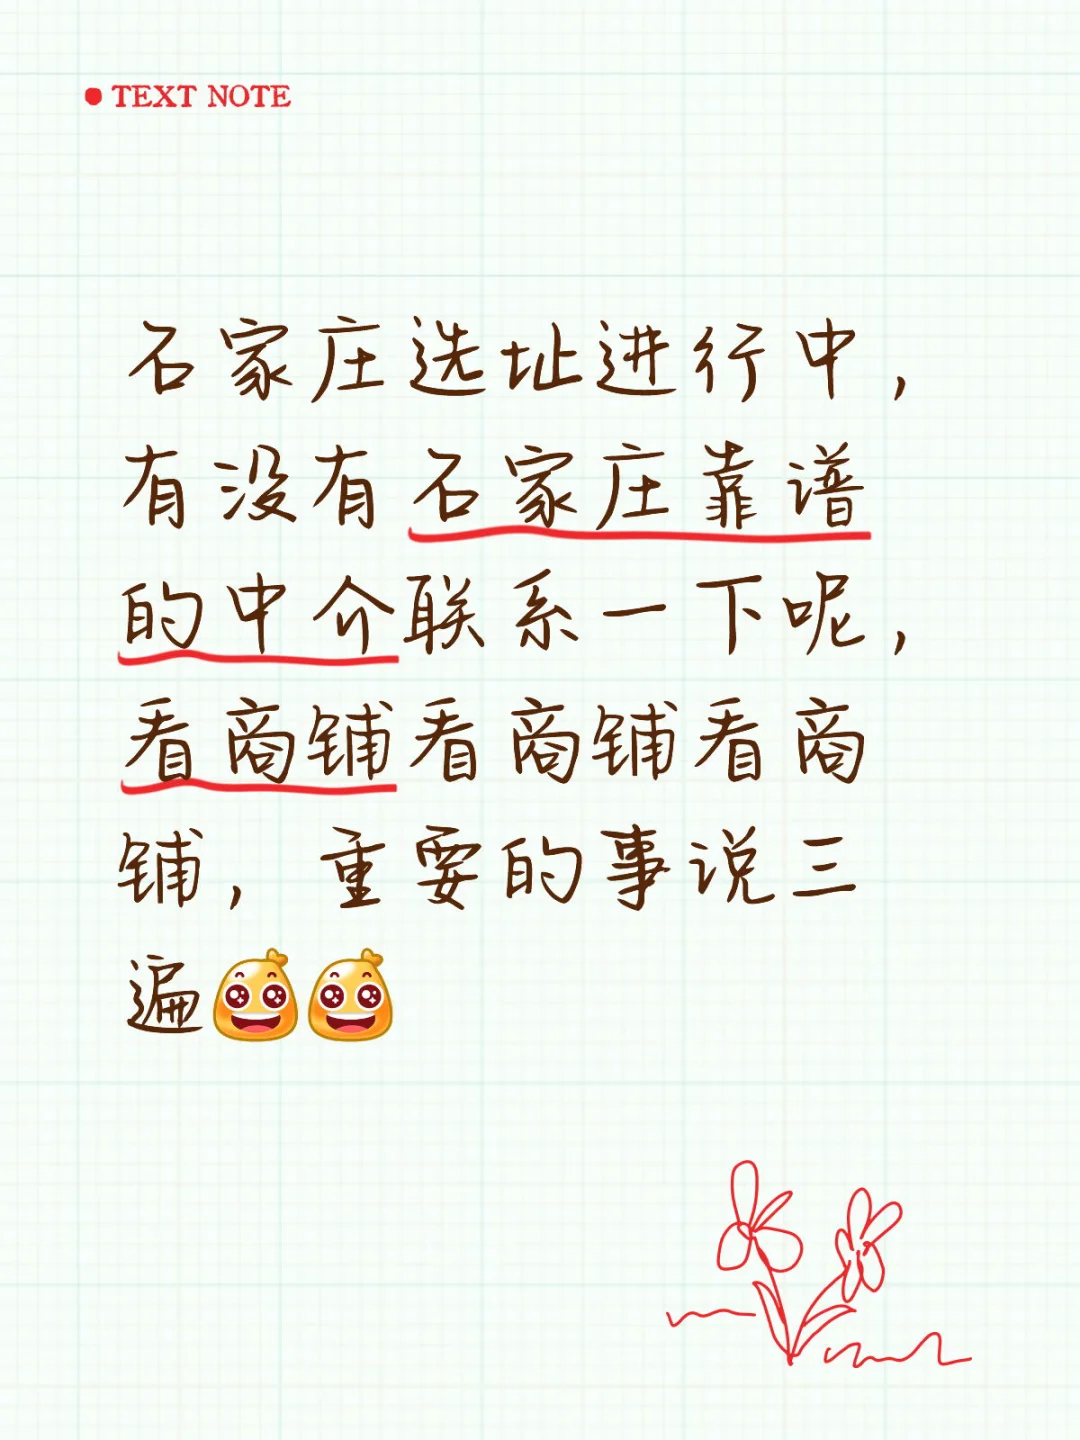 TEXT NOTE
石家庄选址进行中,
有没有石家庄靠谱
的中介联系一下呢,
看商铺看商铺看商
铺,重要的事说三
遍